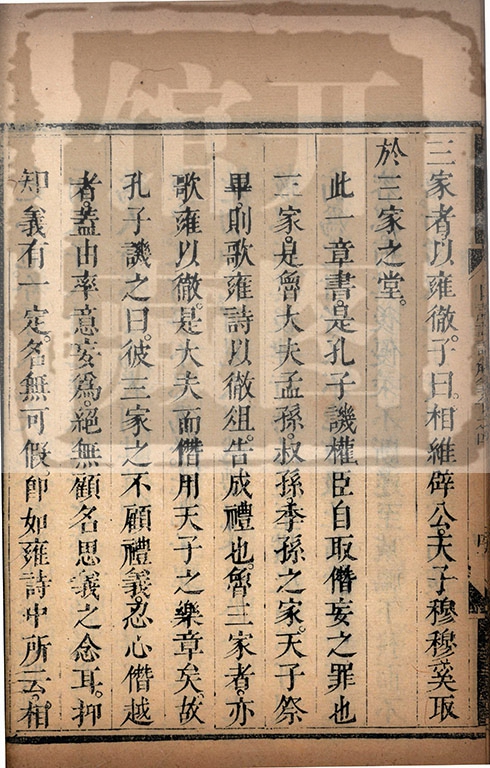 三家者以雍徹子曰相維辟公天子穆穆奚取
於三家之堂。
此一章書。是孔子譏權臣自取僭妄之罪也
三家。是魯大夫孟孫。叔孫。季孫之家。天子祭
畢。則歌雍詩以徹俎。告成禮也。魯三家者。亦
歌雍以徹。是大夫而僭用天子之樂章矣。故
孔子譏之曰。彼三家之不顧禮義。忍心僭越
者。蓋出率意妄爲。絕無顧名思義之念耳。抑
知義有一定。名無可假。卽如雍詩中所云。相